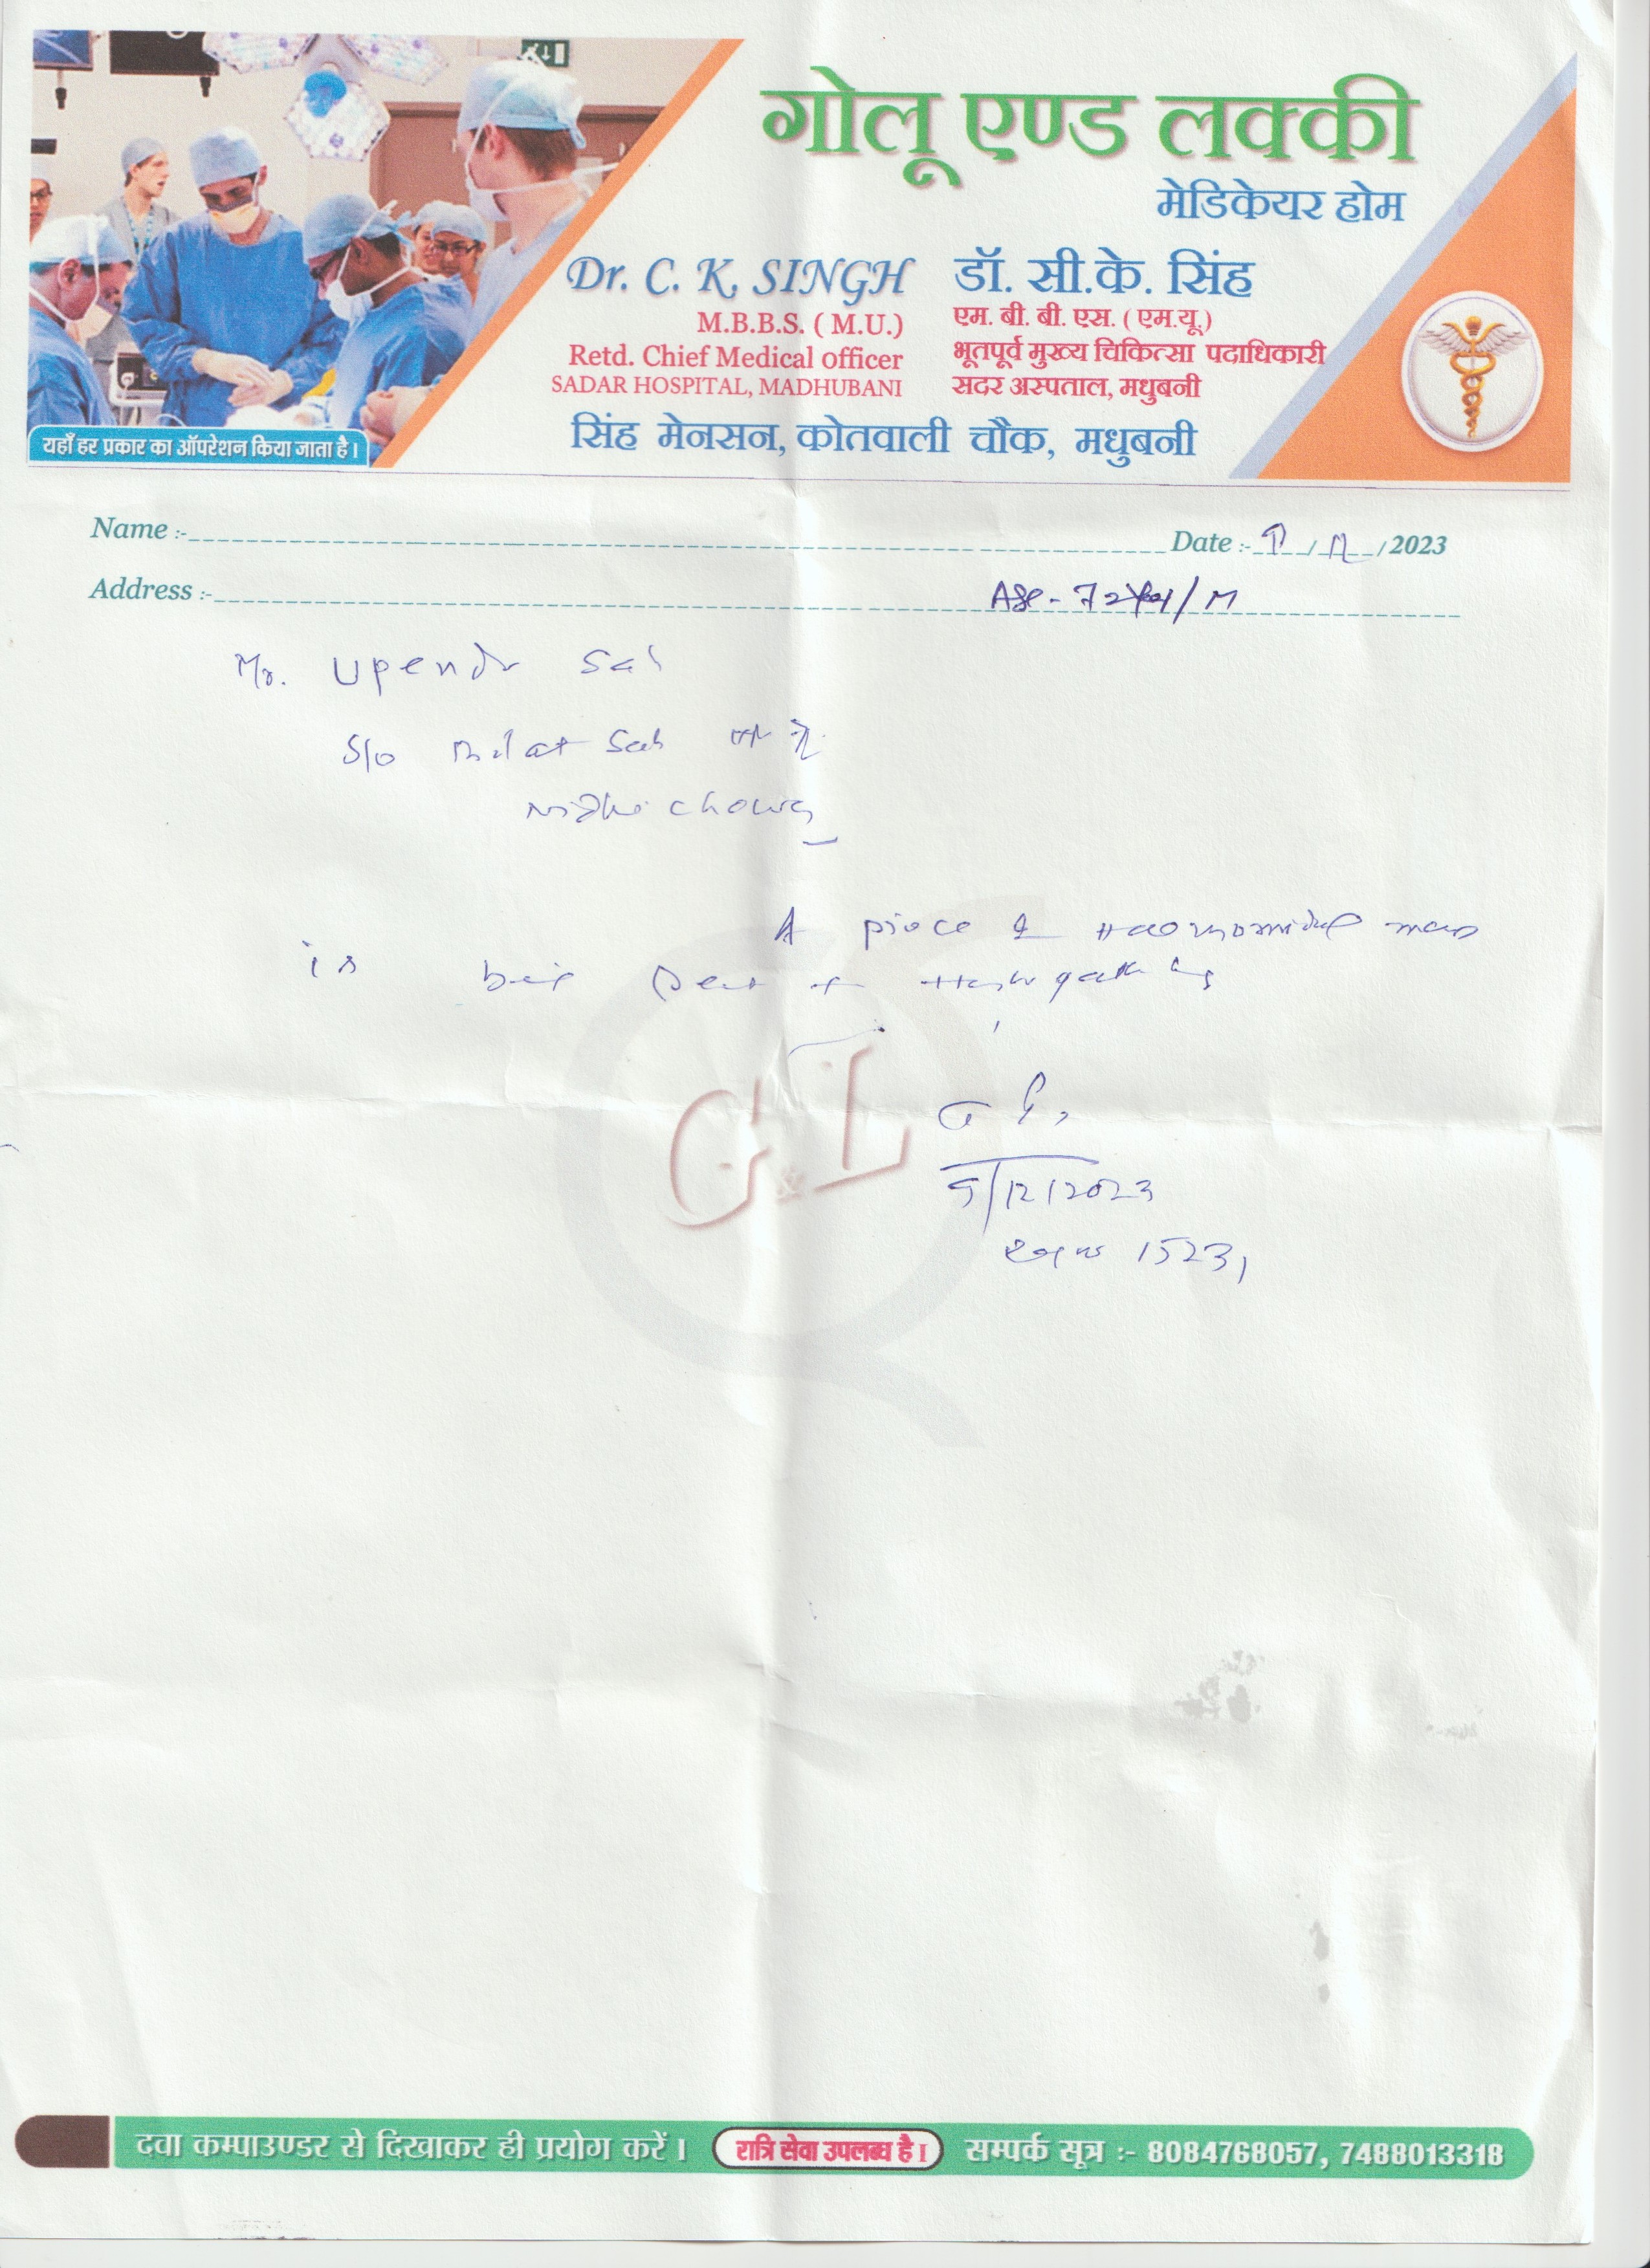 गोलू एण्ड लक्की
मेडिकेयर होम
Dr. C. K. SINGH
M.B.B.S. ( M.U.)
Retd. Chief Medical officer
SADAR HOSPITAL, MADHUBANI
डॉ. सी.के. सिंह
एम. बी. बी. एस. ( एम.यू.)
भूतपूर्व मुख्य चिकित्सा पदाधिकारी
सदर अस्पताल, मधुबनी
सिंह मेनसन, कोतवाली चौक, मधुबनी
यहाँ हर प्रकार का ऑपरेशन किया जाता है।
Name :- Date :- / /2023
Address :- Age - 72 /M
Mr. Upendr Sah
S/o Sah
A piece
is being sent
9/12/2023
1523,
G & L
दवा कम्पाउण्डर से दिखाकर ही प्रयोग करें। रात्रि सेवा उपलब्ध है। सम्पर्क सूत्र :- 8084768057, 7488013318